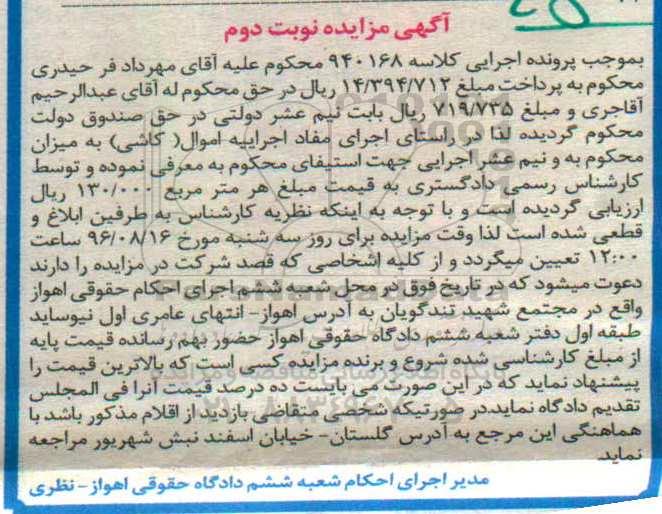 آگهی مزایده نوبت دوم
بموجب پرونده اجرایی کلاسه ۹۴۰۱۶۸ محکوم علیه آقای مهرداد فر حیدری
محکوم به پرداخت مبلغ ۱۴/۳۹۴/۷۱۲ ریال در حق محکوم له آقای عبدالرحیم
آقاجری و مبلغ ۷۱۹/۷۳۵ ریال بابت نیم عشر دولتی در حق صندوق دولت
محکوم گردیده لذا در راستای اجرای مفاد اجراییه اموال( کاشی) به میزان
محکوم به و نیم عشر اجرایی جهت استیفای محکوم به معرفی نموده و توسط
کارشناس رسمی دادگستری به قیمت مبلغ هر متر مربع ۱۳۰/۰۰۰ ریال
ارزیابی گردیده است و با توجه به اینکه نظریه کارشناس به طرفین ابلاغ و
قطعی شده است لذا وقت مزایده برای روز سه شنبه مورخ ۹۶/۰۸/۱۶ ساعت
۱۲:۰۰ تعیین میگردد و از کلیه اشخاصی که قصد شرکت در مزایده را دارند
دعوت میشود که در تاریخ فوق در محل شعبه ششم اجرای احکام حقوقی اهواز
واقع در مجتمع شهید تندگویان به آدرس اهواز- انتهای عامری اول نیوساید
طبقه اول دفتر شعبه ششم دادگاه حقوقی اهواز حضور بهم رسانده قیمت پایه
از مبلغ کارشناسی شده شروع و برنده مزایده کسی است که بالاترین قیمت را
پیشنهاد نماید که در این صورت می بایست ده درصد قیمت آنرا فی المجلس
تقدیم دادگاه نماید.در صورتیکه شخصی متقاضی بازدید از اقلام مذکور باشد با
هماهنگی این مرجع به آدرس گلستان- خیابان اسفند نبش شهریور مراجعه
نماید
مدیر اجرای احکام شعبه ششم دادگاه حقوقی اهواز - نظری